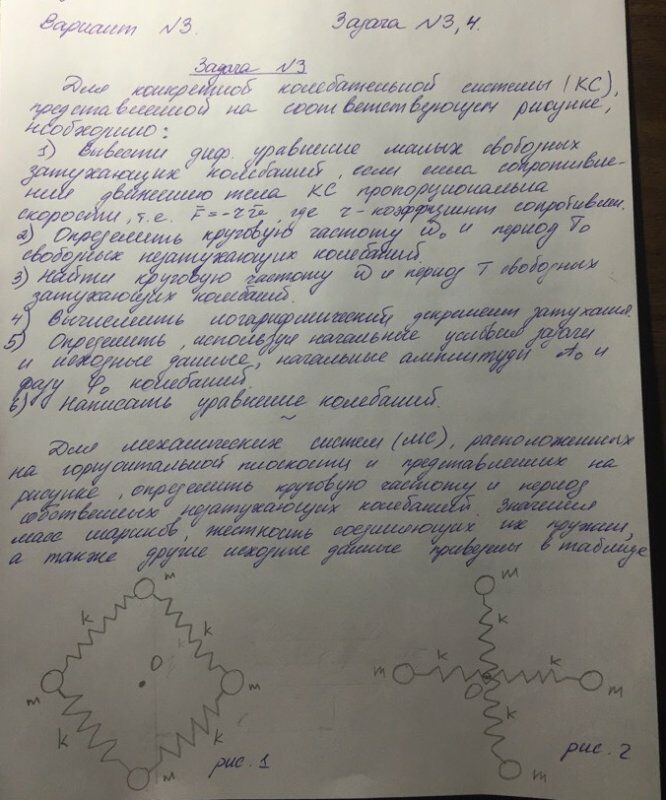 Вариант N3. Задача N3,4.
Задача N3
Для конкретной колебательной системы (КС),
представленной на соответствующем рисунке,
необходимо:
1) Вывести диф. уравнение малых свободных
затухающих колебаний, если сила сопротивле-
ния движению тела КС пропорциональна
скорости, т.е. F̄=-rῡ, где r-коэффициент сопротивлен.
2) Определить круговую частоту ω₀ и период T₀
свободных незатухающих колебаний.
3) Найти круговую частоту ω и период T свободных
затухающих колебаний.
4) Вычислить логарифмический декремент затухания
5) Определить, используя начальные условия задачи
и исходные данные, начальные амплитуды A₀ и
фазу φ₀ колебаний.
6) Написать уравнение колебаний.
~
Для механических систем (МС), расположенных
на горизонтальной плоскости и представленных на
рисунке, определить круговую частоту и период
собственных незатухающих колебаний. Значения
масс шариков, жёсткость соединяющих их пружин,
а также другие исходные данные приведены в таблице
m
k k
O
m m
k k
m
рис. 1
m
k
m k
O m
k
m
рис. 2